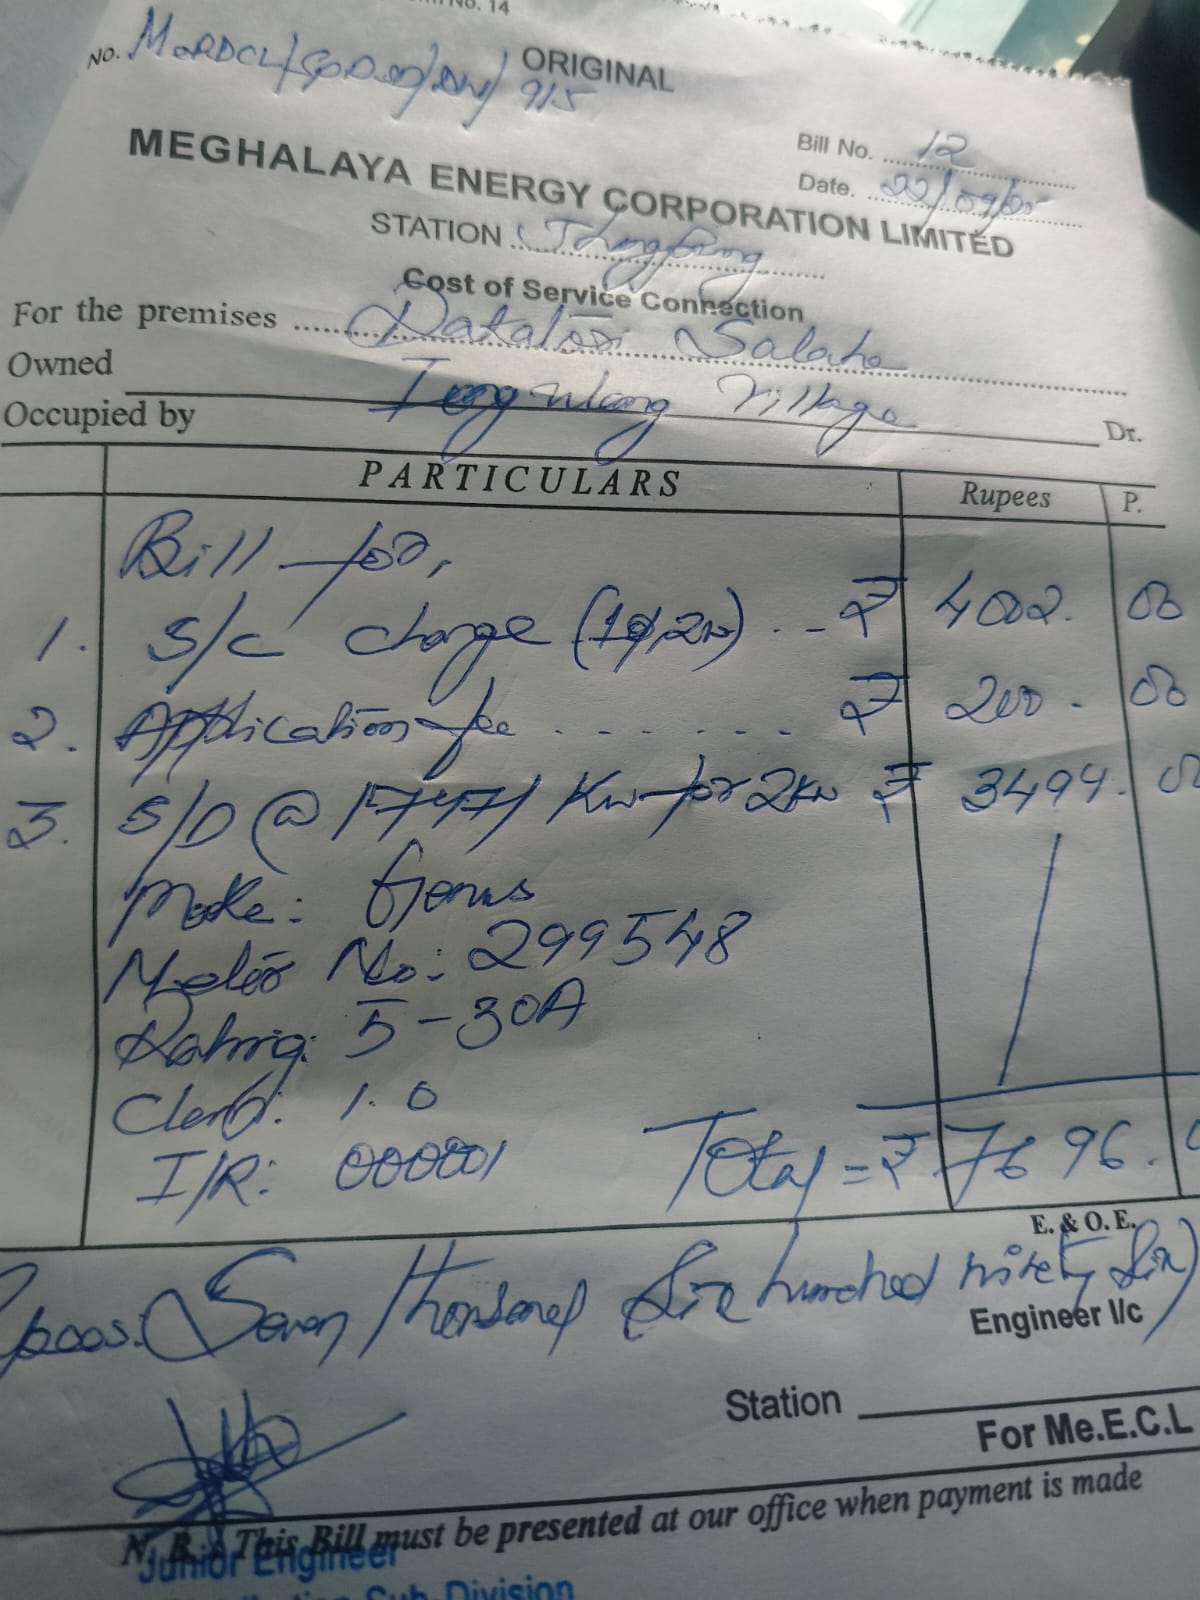 No. 14
ORIGINAL
NO. 915
Bill No. 12
MEGHALAYA ENERGY CORPORATION LIMITED
Date. 22/09/25
STATION
Cost of Service Connection
For the premises Salahe
Owned
Village
Occupied by Dr.
PARTICULARS Rupees P.
Bill for,
1. S/C charge (1φ, 2kw) ₹ 4002. 00
2. Application fee ₹ 200. 00
3. S/D @ 1747/ Kw for 2kw ₹ 3494.
Make: Genus
Meter No: 299548
Rating: 5-30A
Const: 1.0
I/R: 000001
Total = ₹ 7696.
E. & O. E.
(Seven thousand six hundred ninety six)
Engineer I/c
Station
For Me.E.C.L
N. B. : This Bill must be presented at our office when payment is made
Junior Engineer
Sub-Division